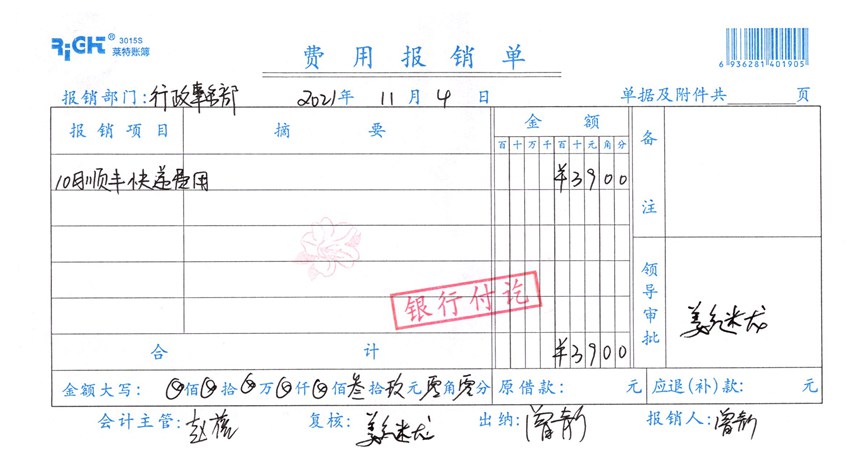 RiGHT® 3015S 莱特账簿
费用报销单
6 936281 401905
报销部门:行政事务部 2021年 11月 4日 单据及附件共 页
报销项目 摘要 金额 备注
百十万千百十元角分
10月顺丰快递费用 ¥3900
银行付讫
领导审批
合计 ¥3900
金额大写: ⊗佰⊗拾⊗万⊗仟⊗佰叁拾玖元零角零分 原借款: 元 应退(补)款: 元
会计主管: 赵 复核: 姜 龙 出纳: 曾新 报销人: 曾新